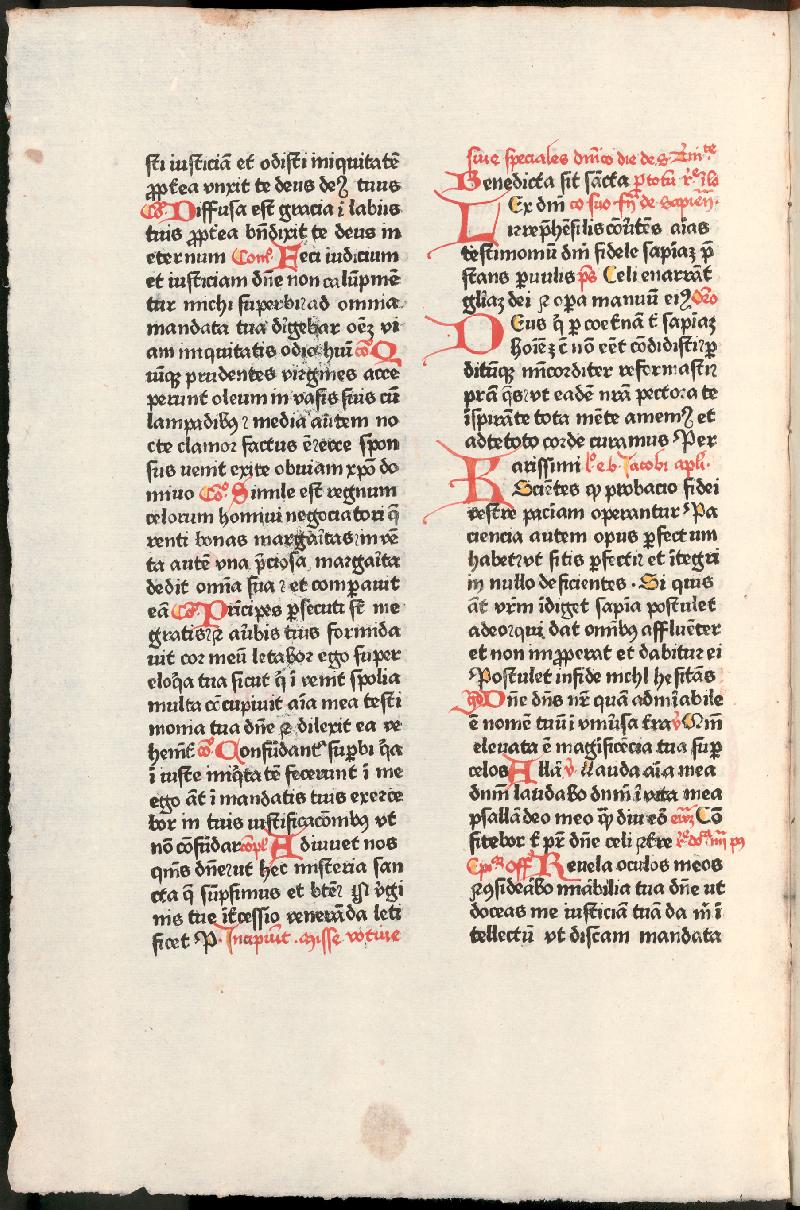 sti iusticiā et odisti iniquitatē
ꝓpťea vnxit te deus deꝰ tuus
Cō Diffusa est gracia ī labiis
tuis ꝓpťea bn̄dixit te deus in
eternum Com̄ Feci iudicium
et iusticiam dn̄e non calūpmē
tur michi superbi ad omnia
mandata tua dīgebar oēꝫ vi
am iniquitatis odio huī cō Q
uīqꝫ prudentes virgines acce
perunt oleum in vasis suis cū
lampadibꝰ media autem no
cte clamor factus ē ecce spon
sus venit exite obuiam xp̄o do
mino Cō Simile est regnum
celorum homini negociatori q̄
renti bonas margaītas inuē
ta autē vna p̄ciosa margaīta
dedit om̄ia sua et comparauit
eā Cō Principes ꝑsecuti sē me
gratis a v̄bis tuis formida
uit cor meū letabor ego super
eloq̄a tua sicut q̄ ī venit spolia
multa cōcupiuit aīa mea testi
monia tua dn̄e dilexit ea ve
hemēt cō Confūdant suꝑbi q̄a
ī iuste miq̄tatē fecerunt ī me
ego āt ī mandatis tuis exerce
bor in tuis iustificacōnibꝰ vt
nō cōfūdar cōpl Adiuuet nos
qm̄s dn̄e vt hec misteria san
cta q̄ sūpsimus et btē v̄gi
nis tue īťcessio venerāda leti
ficet P. Incipiūt misse votiue
siue speciales dn̄ico die de s Tīn.te
Benedicta sit sācta ꝑ totū
Lex dm̄ cō suo fr̄ de sapien
ui irrep̄hēsilis cōuťtēs aīas
testimoniū dm̄ fidele sapiāꝫ p̄
stans ꝑuulis ps Celi enarrāt
gl̄iaꝫ dei ꝛ oꝑa manuū eiꝰ Oro
Deus q̄ ꝑ coetnā t̄ sapiāꝫ
hoīeꝫ c̄ nō eēt cōdidisti ꝑ
ditūqꝫ mīcorditer reformasti
pr̄a q̄s vt eadē nr̄a pectora te
īspirāte tota mēte amemꝰ et
ad te toto corde curamus Per
Karissimi Lc̄ e b Jacobi apl̄i
Sciētes ꝙ probacio fidei
vestre paciam operantur Pa
ciencia autem opus ꝑfectum
habet vt sitis ꝑfecti et ītegri
in nullo deficientes. Si quis
āt vr̄m īdiget sapīa postulet
a deo qui dat om̄ibꝰ affluēter
et non imꝓperat et dabitur ei
Postulet in fide nichl hesitās
gd Dn̄e dn̄s nr̄ quā admīabile
ē nomē tuū ī vniūsa ťra v̄ Qm̄
eleuata ē magificēcia tua suꝑ
celos Allā v̄ Lauda aīa mea
dn̄m laudabo dn̄m ī vita mea
psallā deo meo ꝙ̄ diu eō euā Cō
fitebor t̄ pr̄ dn̄e celi ꝛ ťre
Off Reuela oculos meos
ꝛ ꝯsideābo mīabilia tua dn̄e ut
doceas me iusticiā tuā da m̄ ī
tellectū vt discam mandata